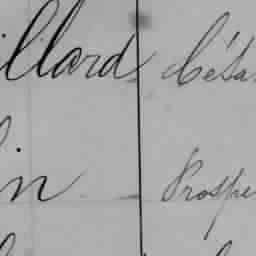 illard Césa
in Prospe